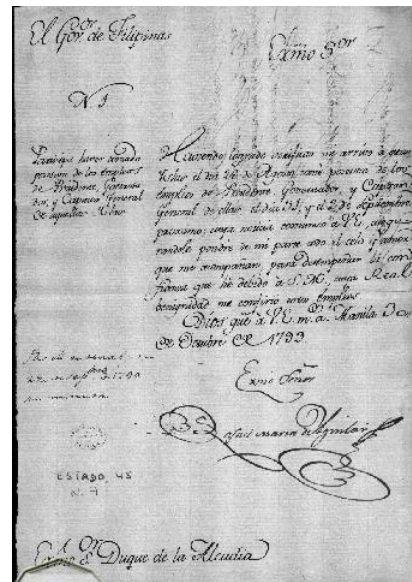 El Gov.or de Filipinas
Exmo S.or
N. 1
Participa haver tomado
posesion de los Empleos
de Presidente, Governa-
dor, y Capitan General
de aquellas Yslas
Haviendo logrado verificar mi arrivo a estas
Yslas el dia 28 de Agosto, tomé posesion de los
Empleos de Presidente, Governador, y Capitan
General de ellas el dia 31, y el 2 de Septiembre
cuya noticia comunico a V.E. asegu-
randole pondre de mi parte todo el celo y
que me acompañan para desempeñar la con-
fianza que he debido a S.M. cuya Real
benignidad me confirió estos empleos.
Dios gu.e a V.E. m.s a.s Manila 3
de 1793.
Exmo Señor
Rafael Maria de Aguilar
ESTADO, 45
N. 7
Exmo S.or Duque de la Alcudia